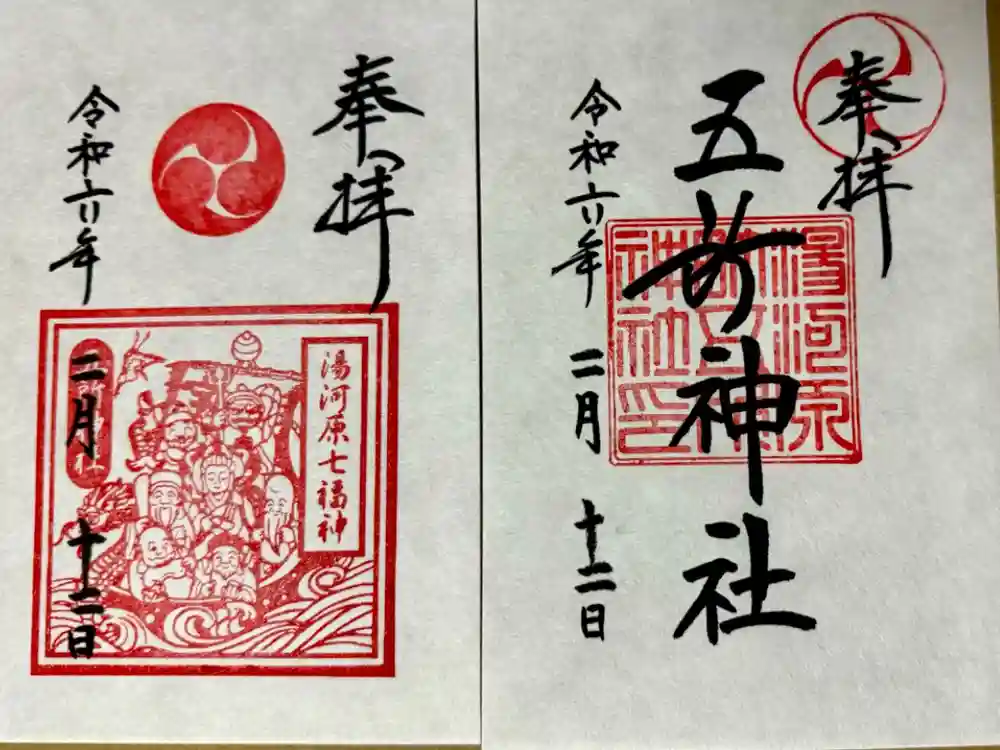 奉拝
湯河原七福神
令和六年
二月
十二日
奉拝
五所神社
湯河原
神社印
令和六年
二月
十二日